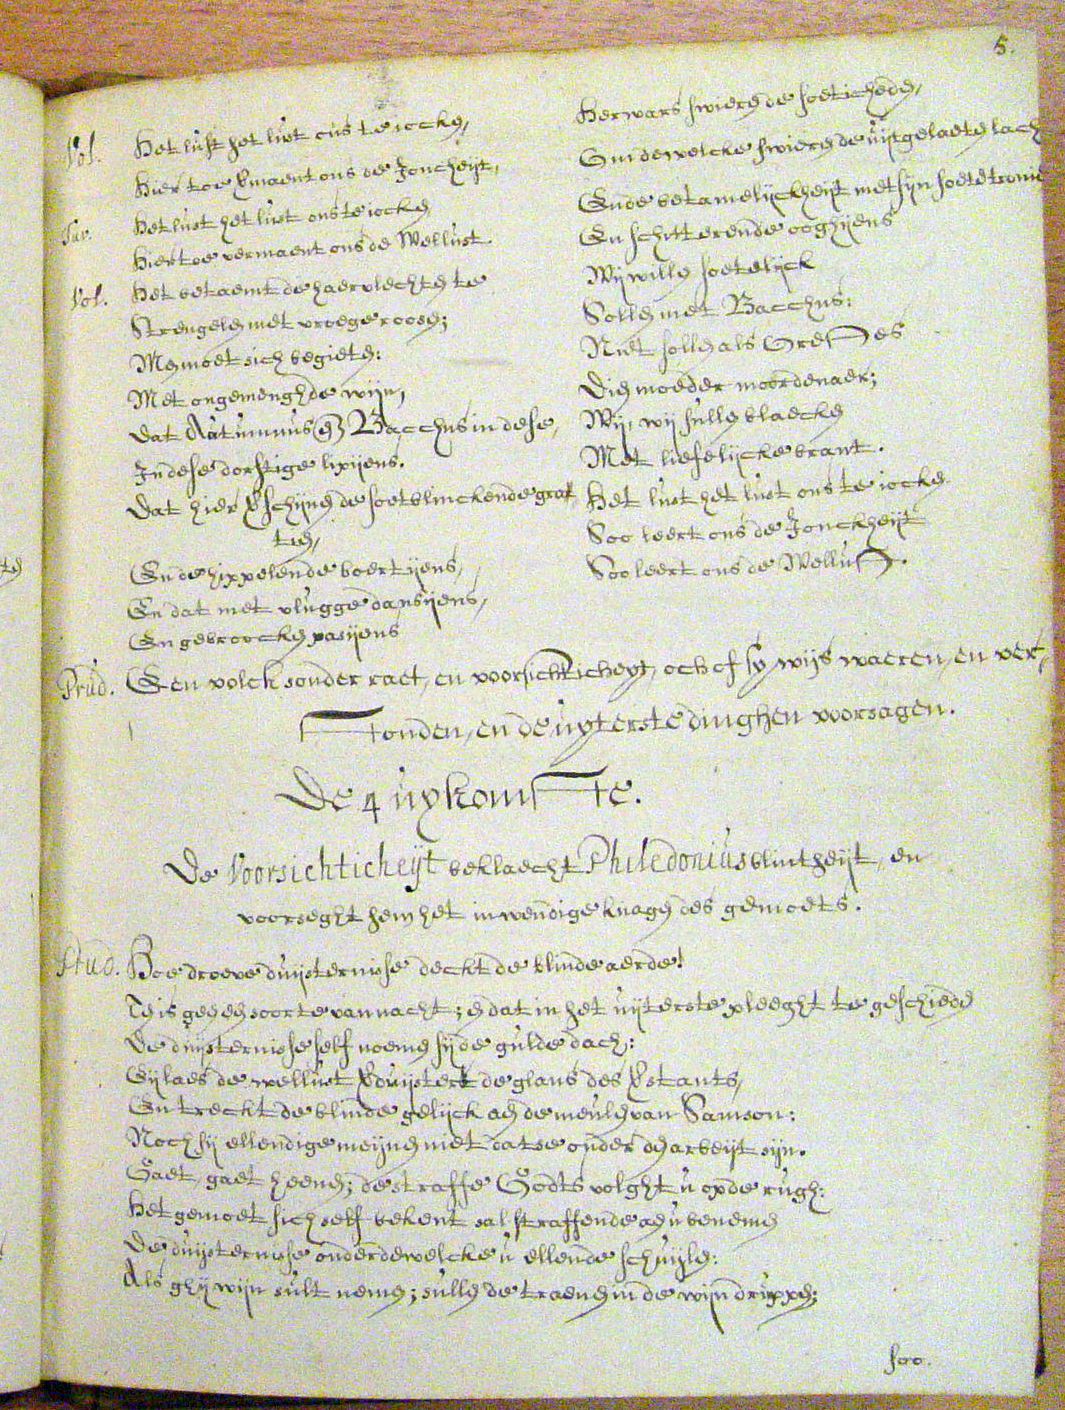 5.
Vol. Het lust het lust ons te jocken,
Hier toe vermaent ons de Jonckheijt,
Juv. Het lust het lust ons te jocken
Hier toe vermaent ons de Wellust.
Vol. Het betaemt de haervlechten te
Strengelen met vroege roosen;
Men moet sich begieten:
Met ongemenghde wijn,
Dat Autumnus en Bacchus in dese,
In dese dorstige lipijens.
Dat hier verschijnen de soetblinckende grat
tien,
En de hippelende boertijens,
En dat met vlugge dansijens,
En gebroocken pasijens
Herwars swieren de soeticheden,
Om dewelcke swieren de uijtgelaeten lach
Ende betamelijckheijt met sijn soete
En schitterende ooghijens
Wij willen soetelijck
Sollen met Bacchus:
Niet sollen als Orestes
Dien moeder moordenaer;
Wij, wij sullen blaecken
Met liefelijcke brant.
Het lust het lust ons te jocken
Soo leert ons de Jonckheijt
Soo leert ons de Wellust.
Prud. Een volck sonder raet, en voorsichticheyt, och of sy wijs waeren, en ver,
stonden, en de uyterste dinghen voorsagen.
De 4 uykomste.
De Voorsichticheijt beklaecht Philedonius blintheijt, en
voorseght hem het inwendige knagen des gemoets.
Hoe droeve duijsternisse deckt de blinde aerde!
T'is geen soorte van nacht; en dat in het uijterste pleeght te geschieden
De duijsternisse self noemen sij de gulde dach:
Eijlaes de wellust verduijstert de glans des verstants,
En treckt de blinde gelijck aen de meulen van Samson:
Noch sij ellendige meijnen niet datse onder den arbeijt sijn.
Gaet, gaet heenen; de straffe Godts volght u op de rugh:
Het gemoet sich self bekent sal straffende aen u benemen
De duijsternisse onder dewelcke u ellende schuijlen:
Als ghij wijn sult nemen; sullen de traenen in de wijn druppen;
soo.